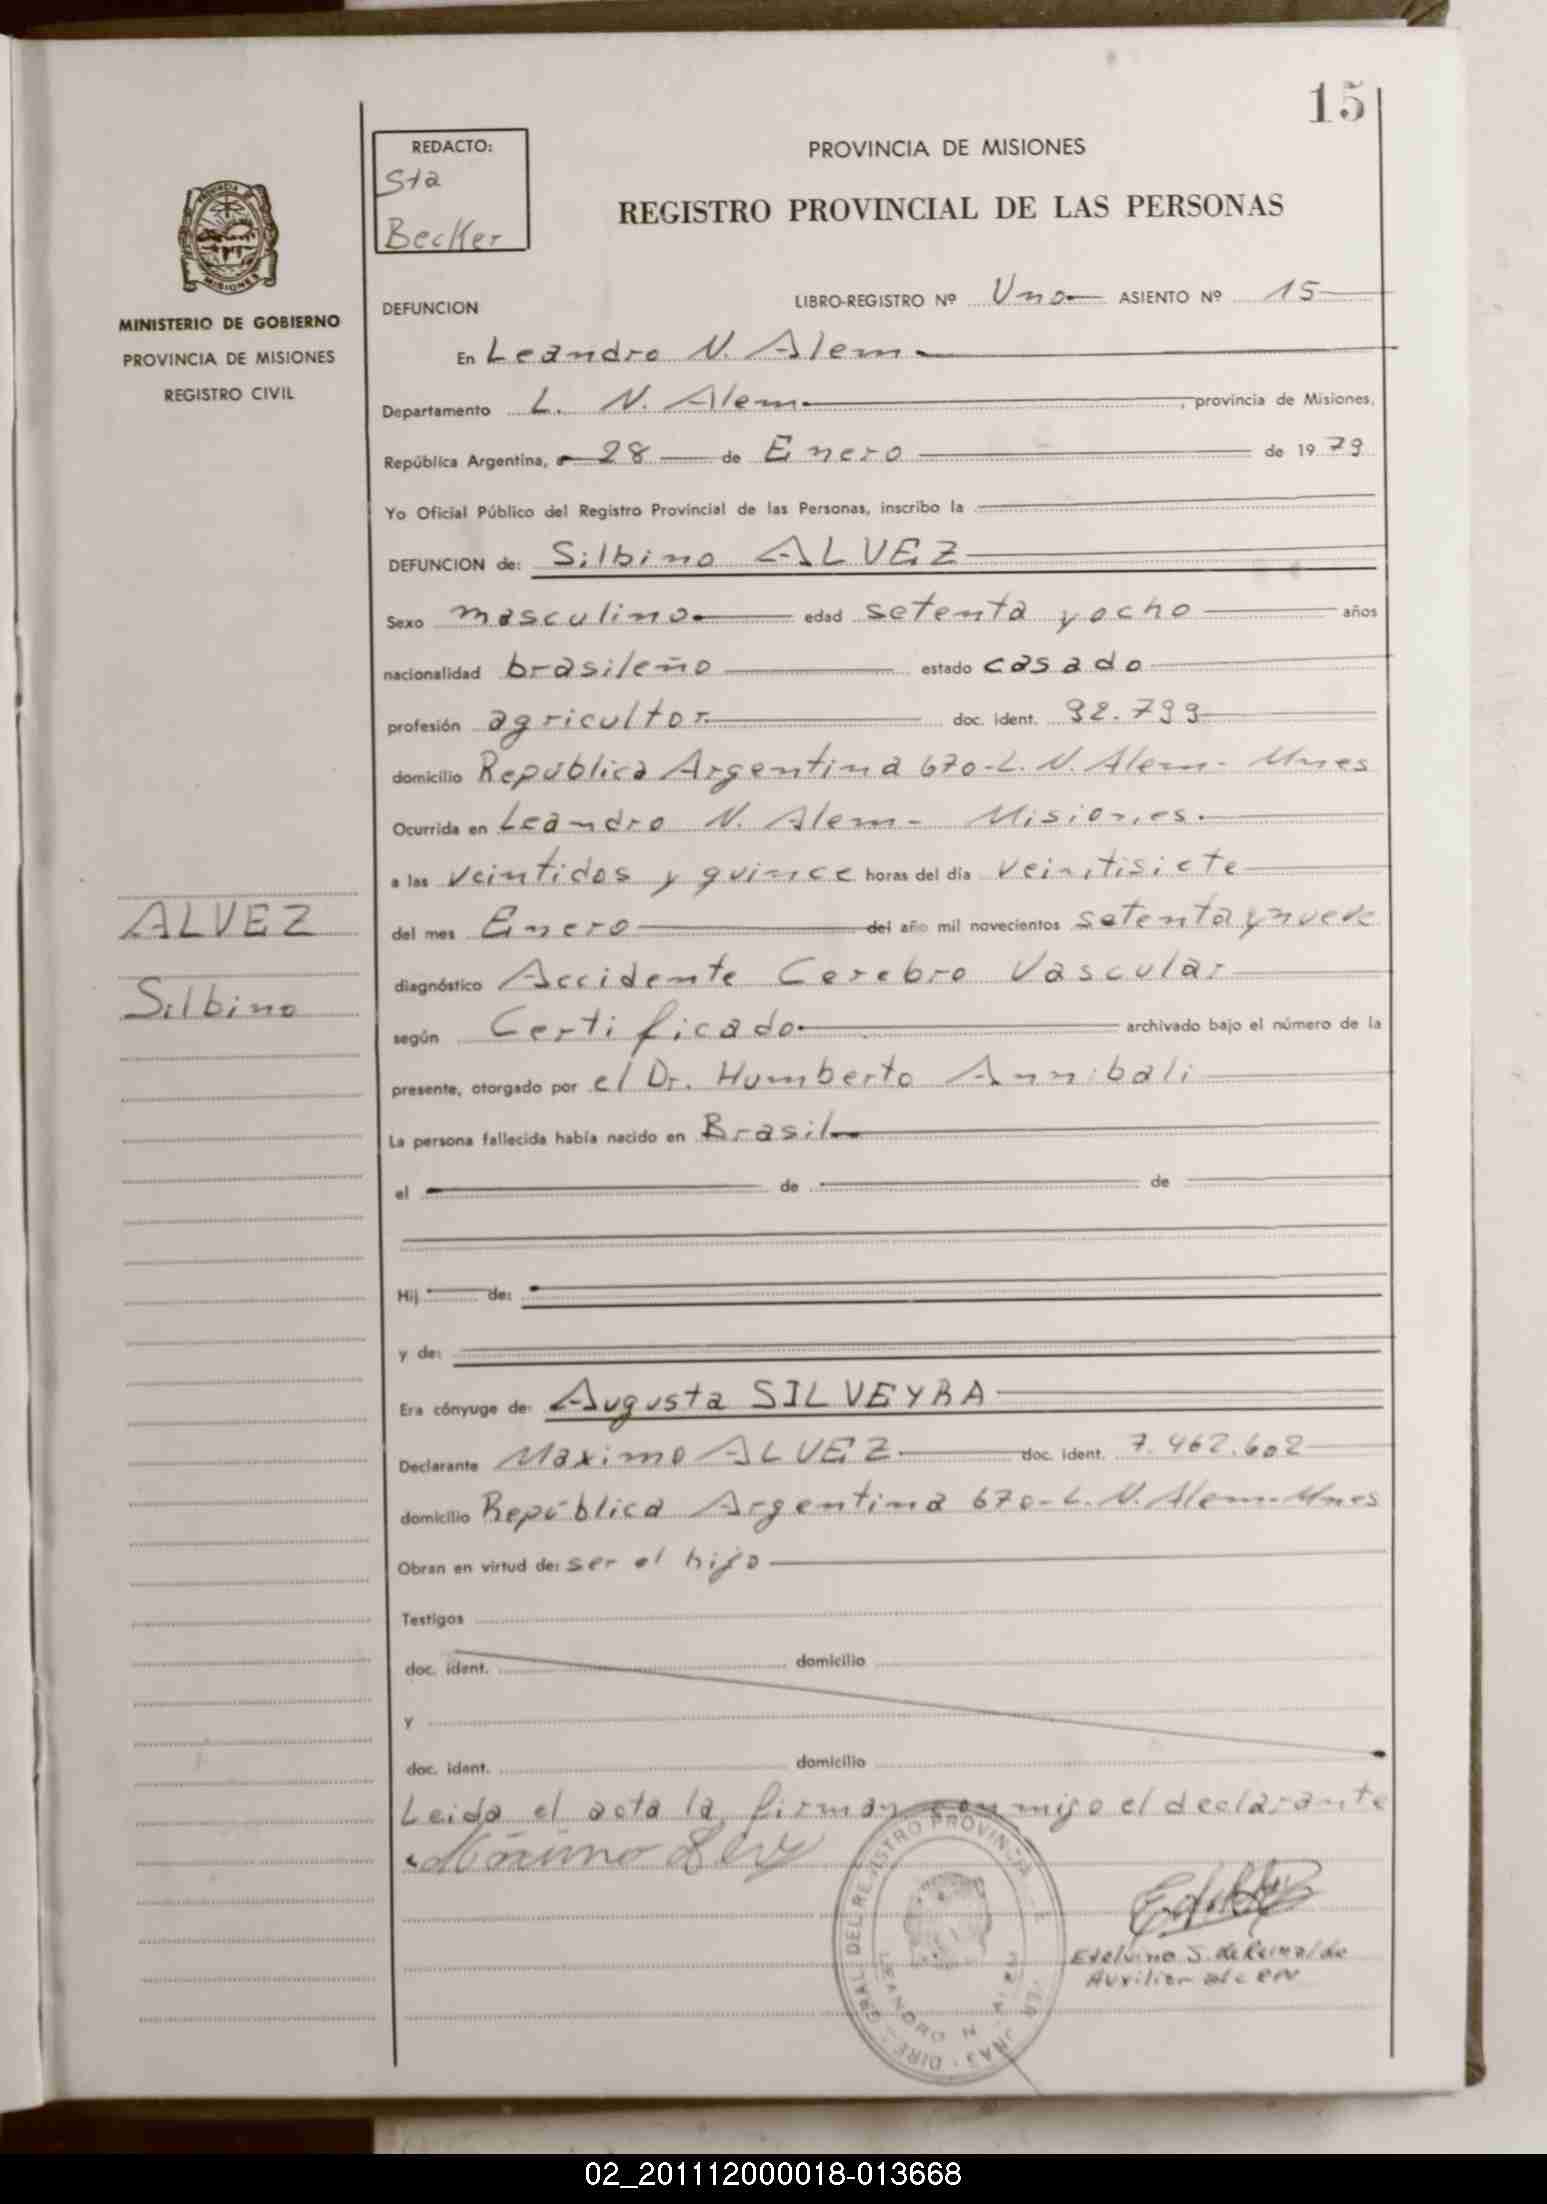 15
REDACTO:
Sta
Becker
PROVINCIA DE MISIONES
REGISTRO PROVINCIAL DE LAS PERSONAS
MISIONES
MINISTERIO DE GOBIERNO
PROVINCIA DE MISIONES
REGISTRO CIVIL
DEFUNCION LIBRO-REGISTRO Nº Uno ASIENTO Nº 15
En Leandro N. Alem
Departamento L. N. Alem, provincia de Misiones,
República Argentina, 28 de Enero de 1979
Yo Oficial Público del Registro Provincial de las Personas, inscribo la
DEFUNCION de: Silbino ALVEZ
Sexo masculino edad setenta y ocho años
nacionalidad brasileño estado casado
profesión agricultor doc. ident. 92.799
domicilio República Argentina 670-L. N. Alem- Mnes
Ocurrida en Leandro N. Alem- Misiones.
a las veintidos y quince horas del día veintisiete
ALVEZ
del mes Enero del año mil novecientos setenta y nueve
diagnóstico Accidente Cerebro Vascular
Silbino
según Certificado archivado bajo el número de la
presente, otorgado por el Dr. Humberto Annibali
La persona fallecida había nacido en Brasil
el de de
Hij de:
y de:
Era cónyuge de: Augusta SILVEYRA
Declarante Maximo ALVEZ doc. ident. 7.462.602
domicilio República Argentina 670-L. N. Alem-Mnes
Obran en virtud de: ser el hijo
Testigos
doc. ident. domicilio
y
doc. ident. domicilio
Leida el acta la firman conmigo el declarante
DIRE. GRAL DEL REGISTRO PROVINCIAL
LEANDRO N.
Edelvino S. de
Auxiliar
02_201112000018-013668